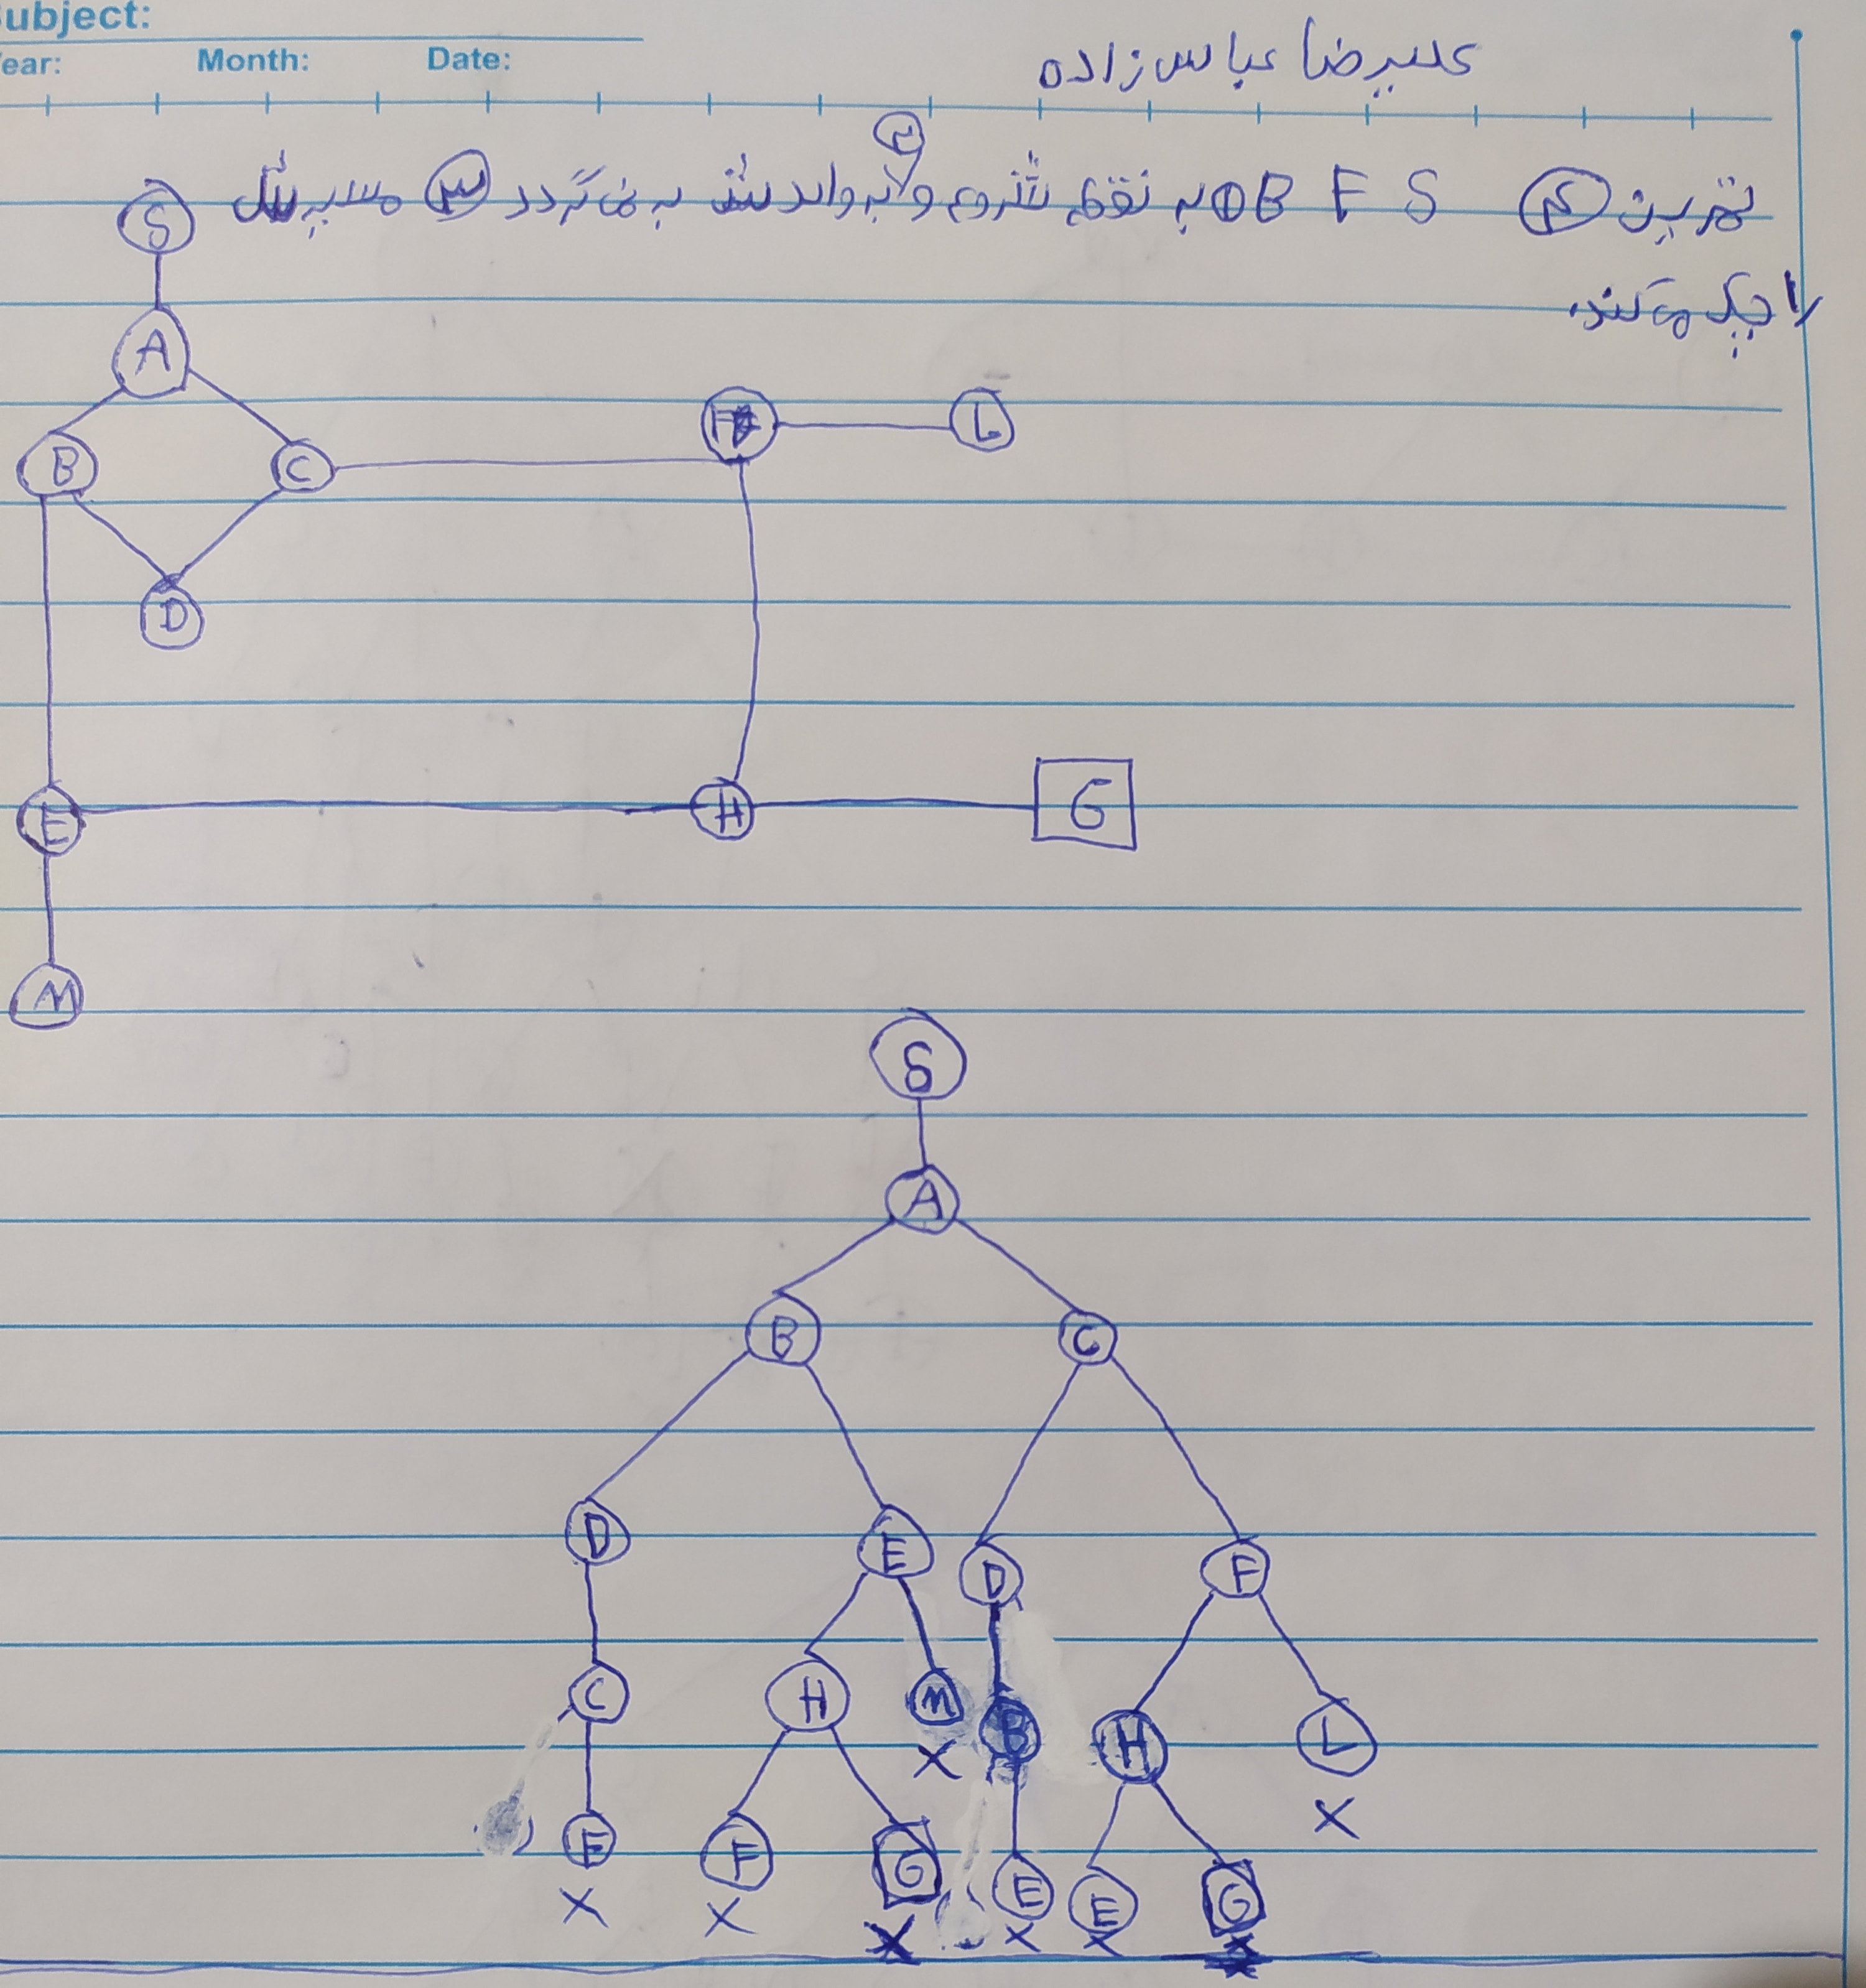 Subject:
Year: Month: Date:
علیرضا عباس زاده
تمرین ④ B F S ① به نقطه شروع و ② به والدش بر نمی‌گردد ③ مسیر
را چک می‌کند.
S
A
B C F L
D
E H G
M
S
A
B C
D E D F
C H M B H L
X X
E F G E E G
X X X X X X